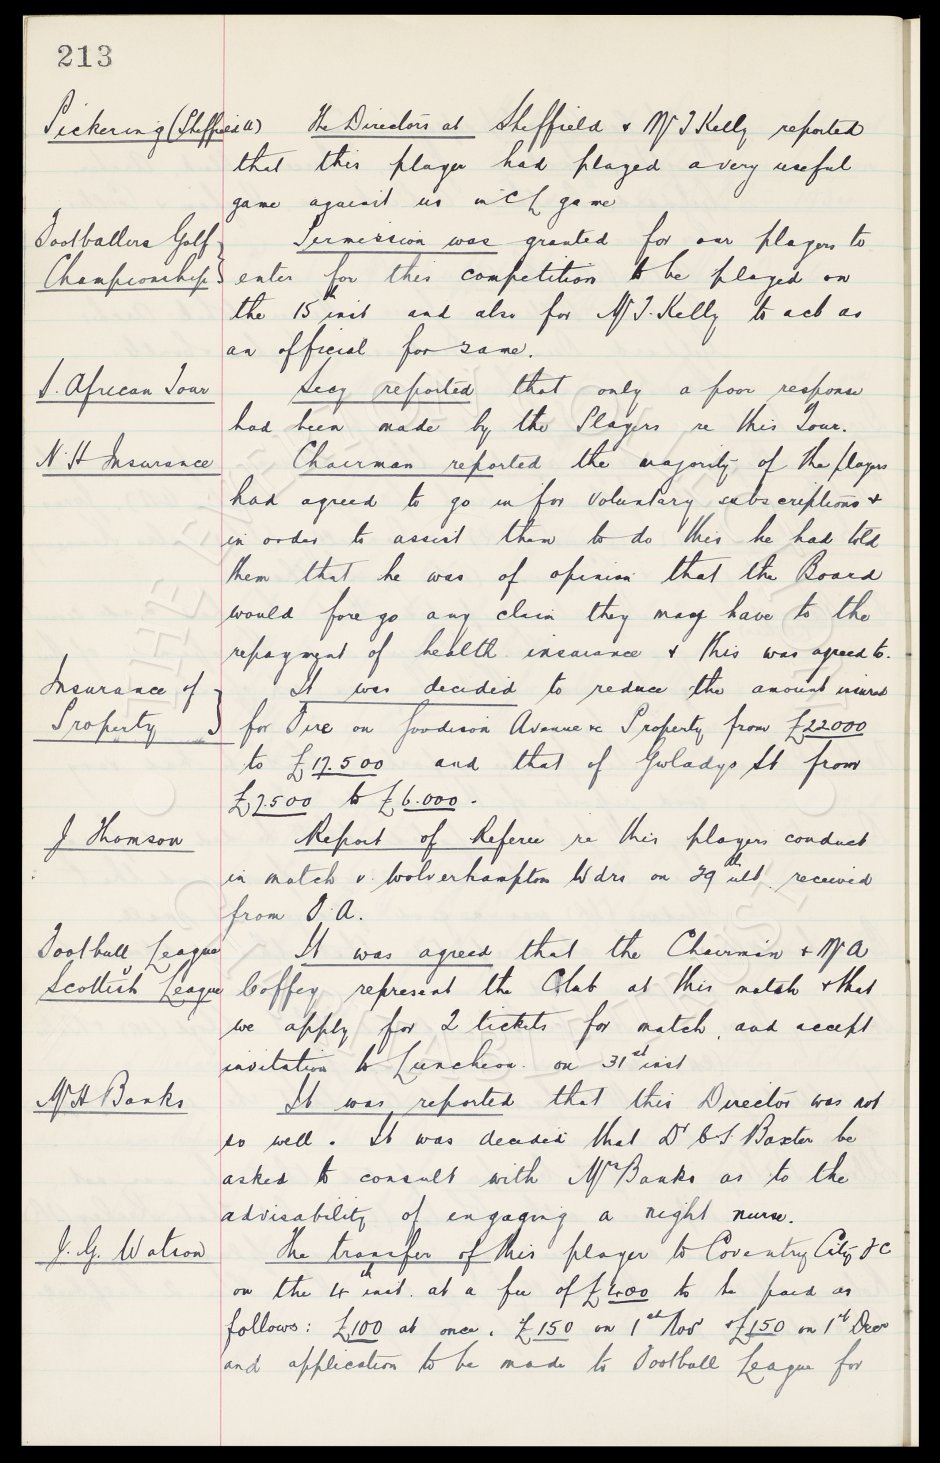 213
Pickering (Sheffield U) The Directors at Sheffield & Mr T Kelly reported
that this player had played a very useful
game against us in C L game
Footballers Golf Permission was granted for our players to
Championship } enter for this competition to be played on
the 15th inst and also for Mr T. Kelly to act as
an official for same.
S. African Tour Secy reported that only a poor response
had been made by the Players re this Tour.
N. H Insurance Chairman reported the majority of the players
had agreed to go in for voluntary subscriptions &
in order to assist them to do this he had told
them that he was of opinion that the Board
would fore go any claim they may have to the
repayment of health insurance & this was agreed to.
Insurance of It was decided to reduce the amount insured
Property } for Fire on Goodison Avenue &c Property from £22000
to £17.500 and that of Gwladys St from
£7500 to £6.000.
J Thomson Report of Referee re this players conduct
in match v. Wolverhampton Wdrs on 29th ult received
from F.A.
Football League It was agreed that the Chairman & Mr A
v Scottish League Coffey represent the Club at this match & that
we apply for 2 tickets for match, and accept
invitation to Luncheon on 31st inst
Mr H Banks It was reported that this Director was not
so well. It was decided that Dr C S. Baxter be
asked to consult with Mr Banks as to the
advisability of engaging a night nurse.
J. G. Watson The transfer of this player to Coventry City F C
on the 4th inst. at a fee of £400 to be paid as
follows: £100 at once, £150 on 1st Nov & £150 on 1st Decr
and application to be made to Football League for